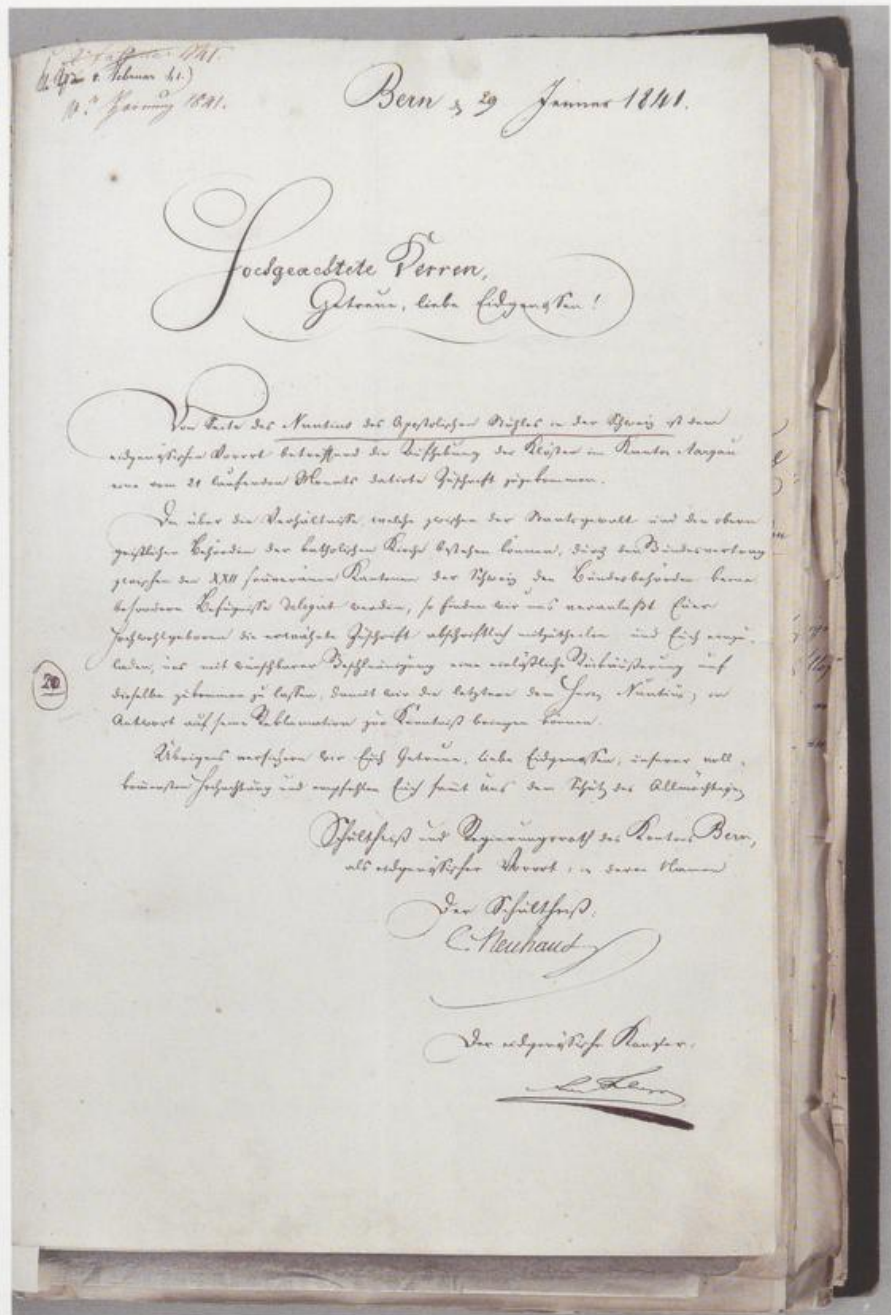 2. Februar 41.)
Hornung 1841.
Bern d. 29 Jenner 1841.
Hochgeachtete Herren,
Getreue, liebe Eidgenossen!
Von Seite des Nuntius des Apostolischen Stuhles in der Schweiz ist dem
eidgenössischen Vorort betreffend die Aufhebung der Klöster im Kanton Aargau
eine vom 21 laufenden Monats datirte Zuschrift zugekommen.
Da über die Verhältnisse, welche zwischen der Staatsgewalt und den obern
geistlichen Behörden der katholischen Kirche bestehen können, durch den Bundesvertrag
zwischen den XXII souveränen Kantonen der Schweiz den Bundesbehörden keine
besondern Befugnisse delegirt werden, so finden wir uns veranlaßt Euer
Hochwohlgeboren die erwähnte Zuschrift abschriftlich mitzutheilen und Euch einzu-
laden, uns mit wünschbarer Beschleunigung eine einläßliche Rückäußerung auf
dieselbe zukommen zu lassen, damit wir die letztere dem Herrn Nuntius, in
Antwort auf seine Reklamation zur Kenntniß bringen können.
20
Übrigens versichern wir Euch Getreue, liebe Eidgenossen, unserer voll-
kommensten Hochachtung und empfehlen Euch samt uns dem Schutz des Allmächtigen
Schultheiß und Regierungsrath des Kantons Bern,
als eidgenössischer Vorort, in deren Namen
Der Schultheiß,
C. Neuhaus
Der eidgenössische Kanzler,